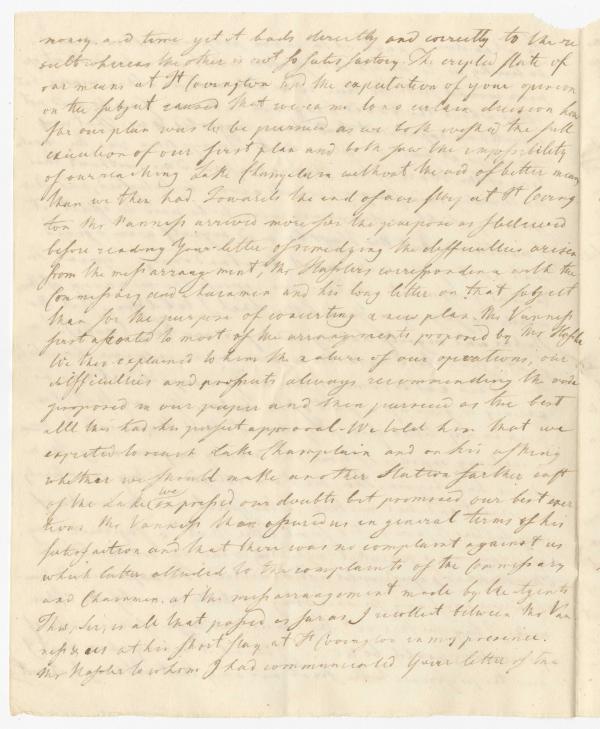 money and time yet it leads directly and correctly to the re
sult whereas the other is not so satisfactory. The cripled state of
our means at Ft Covington and the expectation of your opinion
on the subject caused that we came to no certain decision how
far our plan was to be pursued as we both wished the full
execution of our first plan and both saw the impossibility
of our reaching Lake Champlain without the aid of better means
than we then had. Towards the end of our stay at Ft Coving
ton Mr Vanness arrived more for the purpose as I believed
before reading Your letter of remedying the difficulties arisen
from the mess arrangement, Mr Hasslers correspondence with the
Commissary and chainmen and his long letter on that subject
than for the purpose of concerting a new plan. Mr Vanness
first assented to most of the arrangements proposed by Mr Hassler
We then explained to him the nature of our operations, our
difficulties and prospects always recommending the mode
proposed in our paper and then pursued as the best
all this had his perfect approval. We told him that we
expected to reach Lake Champlain and on his asking
whether we should make another Station farther east
of the Lake we expressed our doubts but promised our best exer
tions. Mr Vanness then assured us in general terms of his
satisfaction and that there was no complaint against us
which latter alluded to the complaints of the Commissary
and Chainmen at the mess arrangement made by the Agents
This, Sir, is all that passed as far as I recollect between Mr Van
ness & us at his short stay at Ft Covington in my presence.
Mr Hassler to whom I had communicated Your letter of the